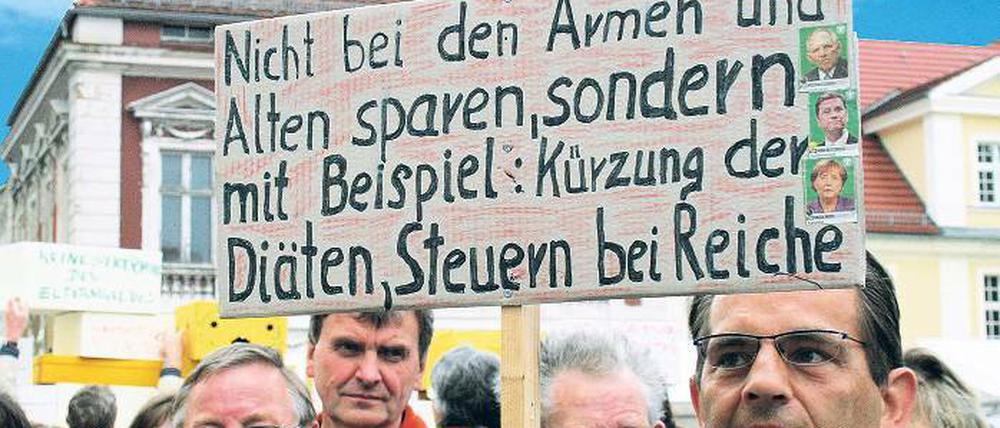 Nicht bei den Armen und
Alten sparen, sondern
mit Beispiel: Kürzung der
Diäten, Steuern bei Reiche
KEINE
DES
ELTERNGELDES